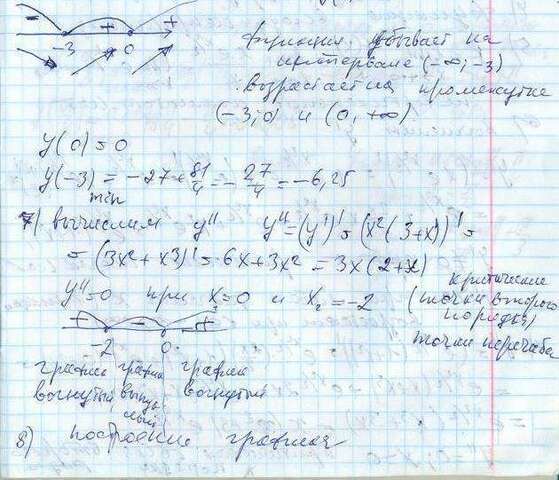 - + +
-3 0
функция убывает на
интервале (-∞; -3)
возрастает на промежутке
(-3; 0) и (0, +∞)
y(0) = 0
y(-3) = -27 + 81/4 = -27/4 = -6,25
min
7) вычислим y'' y'' = (y')' = (x²(3+x))' =
= (3x² + x³)' = 6x + 3x² = 3x(2+x)
y'' = 0 при x₁ = 0 и x₂ = -2
критические
(точки второго
порядка)
точки перегиба
+ - +
-2 0
график график график
вогнутый выпук вогнутый
лый
8) построение графика